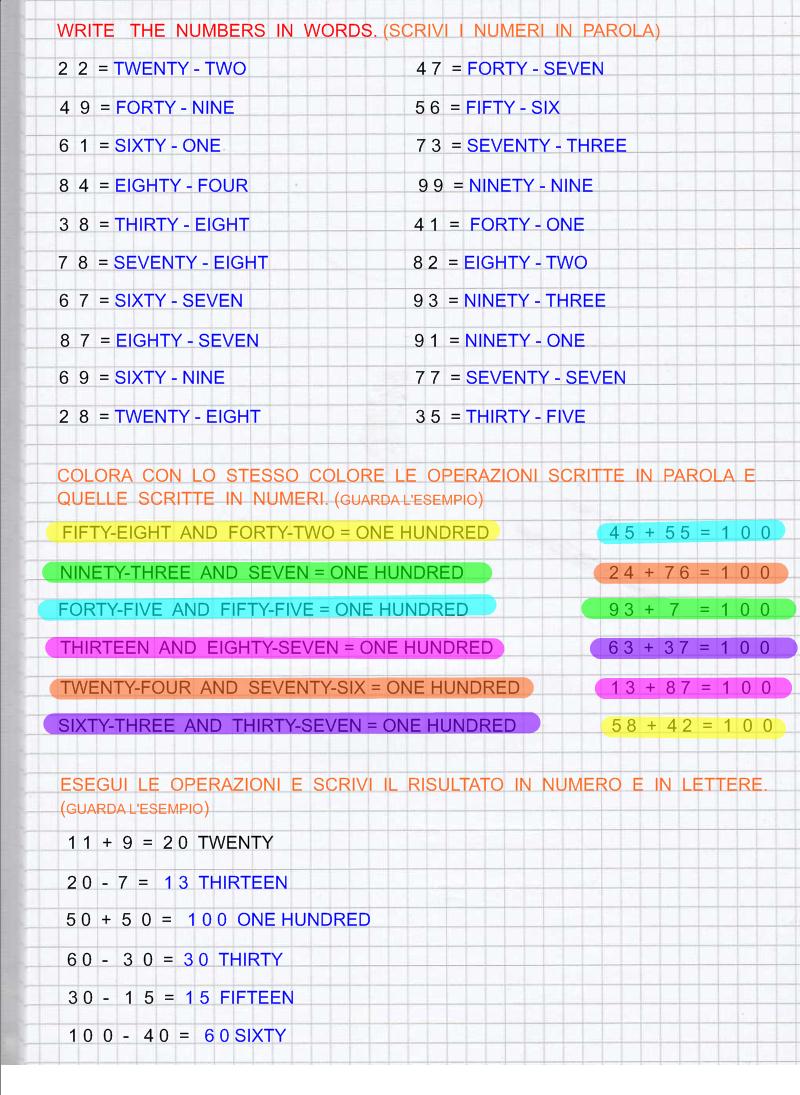 WRITE THE NUMBERS IN WORDS. (SCRIVI I NUMERI IN PAROLA)
2 2 = TWENTY - TWO 4 7 = FORTY - SEVEN
4 9 = FORTY - NINE 5 6 = FIFTY - SIX
6 1 = SIXTY - ONE 7 3 = SEVENTY - THREE
8 4 = EIGHTY - FOUR 9 9 = NINETY - NINE
3 8 = THIRTY - EIGHT 4 1 = FORTY - ONE
7 8 = SEVENTY - EIGHT 8 2 = EIGHTY - TWO
6 7 = SIXTY - SEVEN 9 3 = NINETY - THREE
8 7 = EIGHTY - SEVEN 9 1 = NINETY - ONE
6 9 = SIXTY - NINE 7 7 = SEVENTY - SEVEN
2 8 = TWENTY - EIGHT 3 5 = THIRTY - FIVE
COLORA CON LO STESSO COLORE LE OPERAZIONI SCRITTE IN PAROLA E
QUELLE SCRITTE IN NUMERI. (GUARDA L'ESEMPIO)
FIFTY-EIGHT AND FORTY-TWO = ONE HUNDRED 4 5 + 5 5 = 1 0 0
NINETY-THREE AND SEVEN = ONE HUNDRED 2 4 + 7 6 = 1 0 0
FORTY-FIVE AND FIFTY-FIVE = ONE HUNDRED 9 3 + 7 = 1 0 0
THIRTEEN AND EIGHTY-SEVEN = ONE HUNDRED 6 3 + 3 7 = 1 0 0
TWENTY-FOUR AND SEVENTY-SIX = ONE HUNDRED 1 3 + 8 7 = 1 0 0
SIXTY-THREE AND THIRTY-SEVEN = ONE HUNDRED 5 8 + 4 2 = 1 0 0
ESEGUI LE OPERAZIONI E SCRIVI IL RISULTATO IN NUMERO E IN LETTERE.
(GUARDA L'ESEMPIO)
1 1 + 9 = 2 0 TWENTY
2 0 - 7 = 1 3 THIRTEEN
5 0 + 5 0 = 1 0 0 ONE HUNDRED
6 0 - 3 0 = 3 0 THIRTY
3 0 - 1 5 = 1 5 FIFTEEN
1 0 0 - 4 0 = 6 0 SIXTY